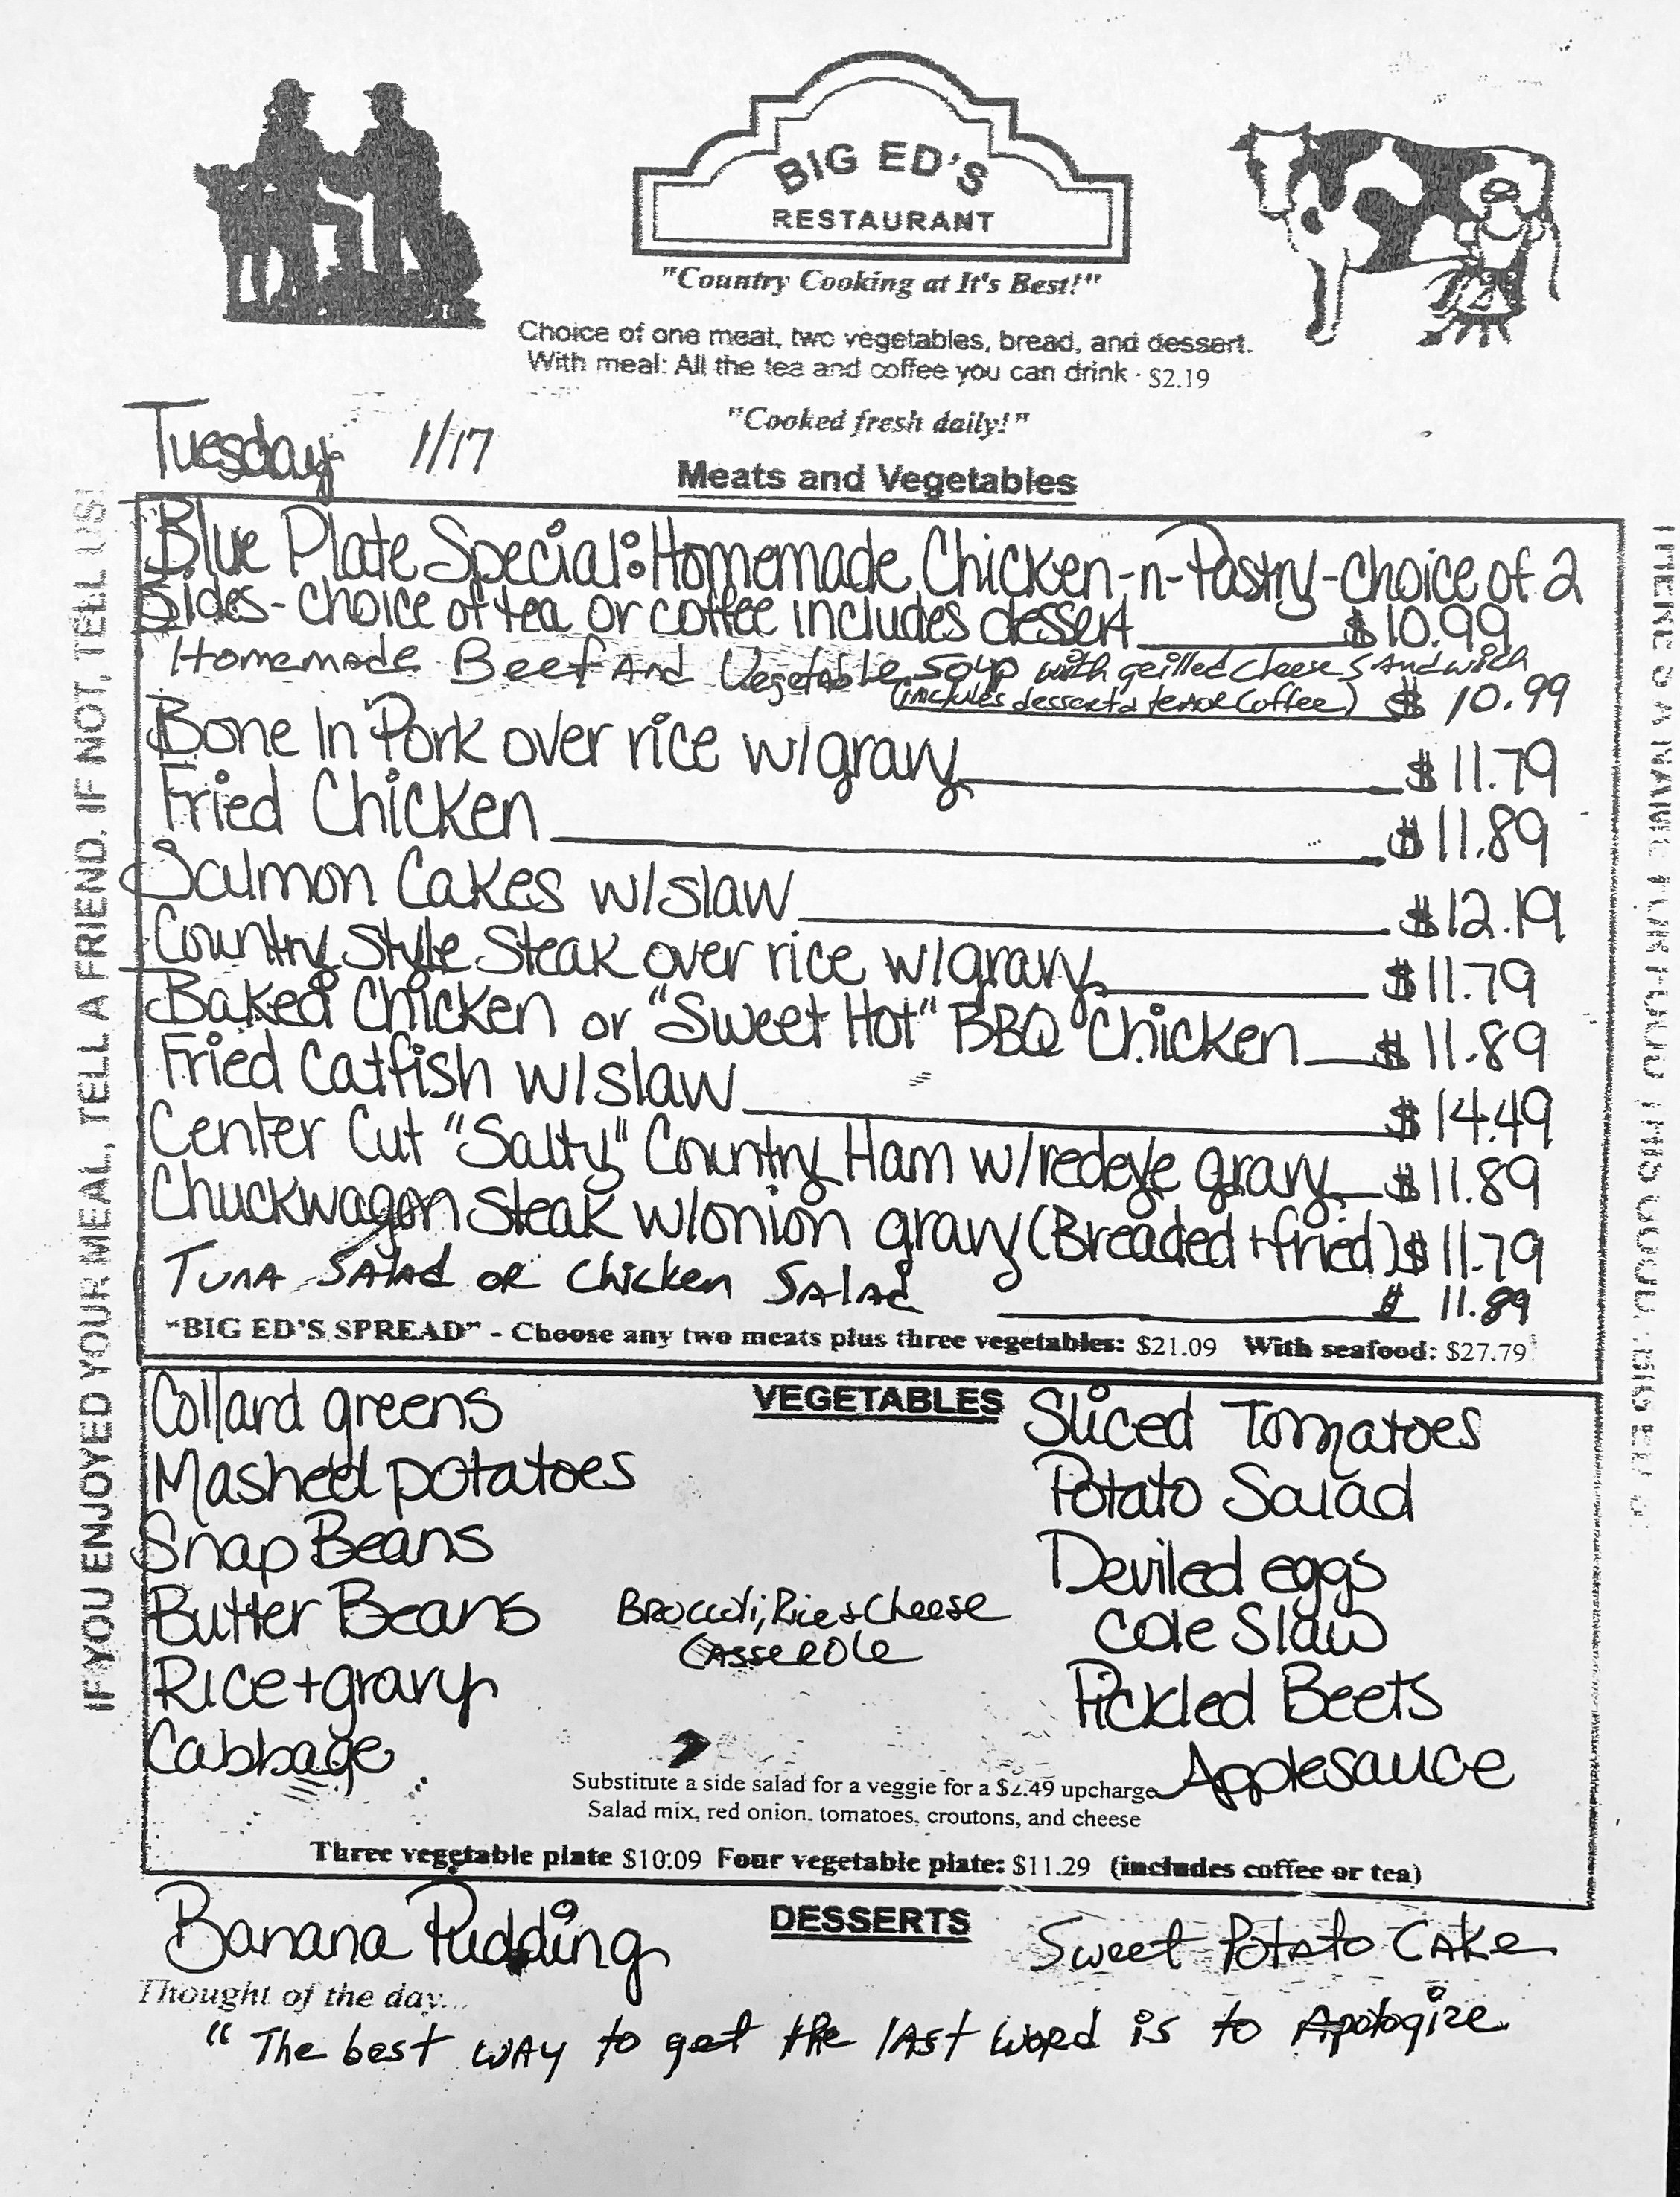 BIG ED'S
RESTAURANT
"Country Cooking at It's Best!"
Choice of one meat, two vegetables, bread, and dessert.
With meal: All the tea and coffee you can drink - $2.19
"Cooked fresh daily!"
Tuesday 1/17
Meats and Vegetables
Blue Plate Special: Homemade Chicken-n-Pastry-choice of 2
Sides-choice of tea or coffee includes dessert $10.99
Homemade Beef And Vegetable Soup with grilled cheese sandwich
(includes dessert & tea or coffee) $10.99
Bone In Pork over rice w/gravy $11.79
Fried Chicken $11.89
Salmon Cakes w/slaw $12.19
Country Style Steak over rice w/gravy $11.79
Baked Chicken or "Sweet Hot" BBQ Chicken $11.89
Fried Catfish w/slaw $14.49
Center Cut "Salty" Country Ham w/redeye gravy $11.89
Chuckwagon Steak w/onion gravy (Breaded + fried) $11.79
Tuna Salad or Chicken Salad $11.89
"BIG ED'S SPREAD" - Choose any two meats plus three vegetables: $21.09 With seafood: $27.79
VEGETABLES
Collard greens
Mashed potatoes
Snap Beans
Butter Beans
Rice + gravy
Cabbage
Broccoli, Rice & Cheese
Casserole
Sliced Tomatoes
Potato Salad
Deviled eggs
Cole Slaw
Pickled Beets
Applesauce
Substitute a side salad for a veggie for a $2.49 upcharge
Salad mix, red onion. tomatoes, croutons, and cheese
Three vegetable plate $10.09 Four vegetable plate: $11.29 (includes coffee or tea)
DESSERTS
Banana Pudding
Sweet Potato Cake
Thought of the day...
"The best way to get the last word is to Apologize.
IF YOU ENJOYED YOUR MEAL, TELL A FRIEND. IF NOT, TELL US!
THERE'S A NAME FOR FOOD THIS GOOD,